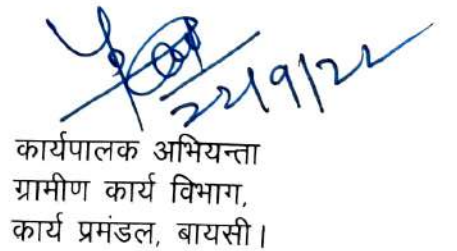 22/9/22
कार्यपालक अभियन्ता
ग्रामीण कार्य विभाग,
कार्य प्रमंडल, बायसी।